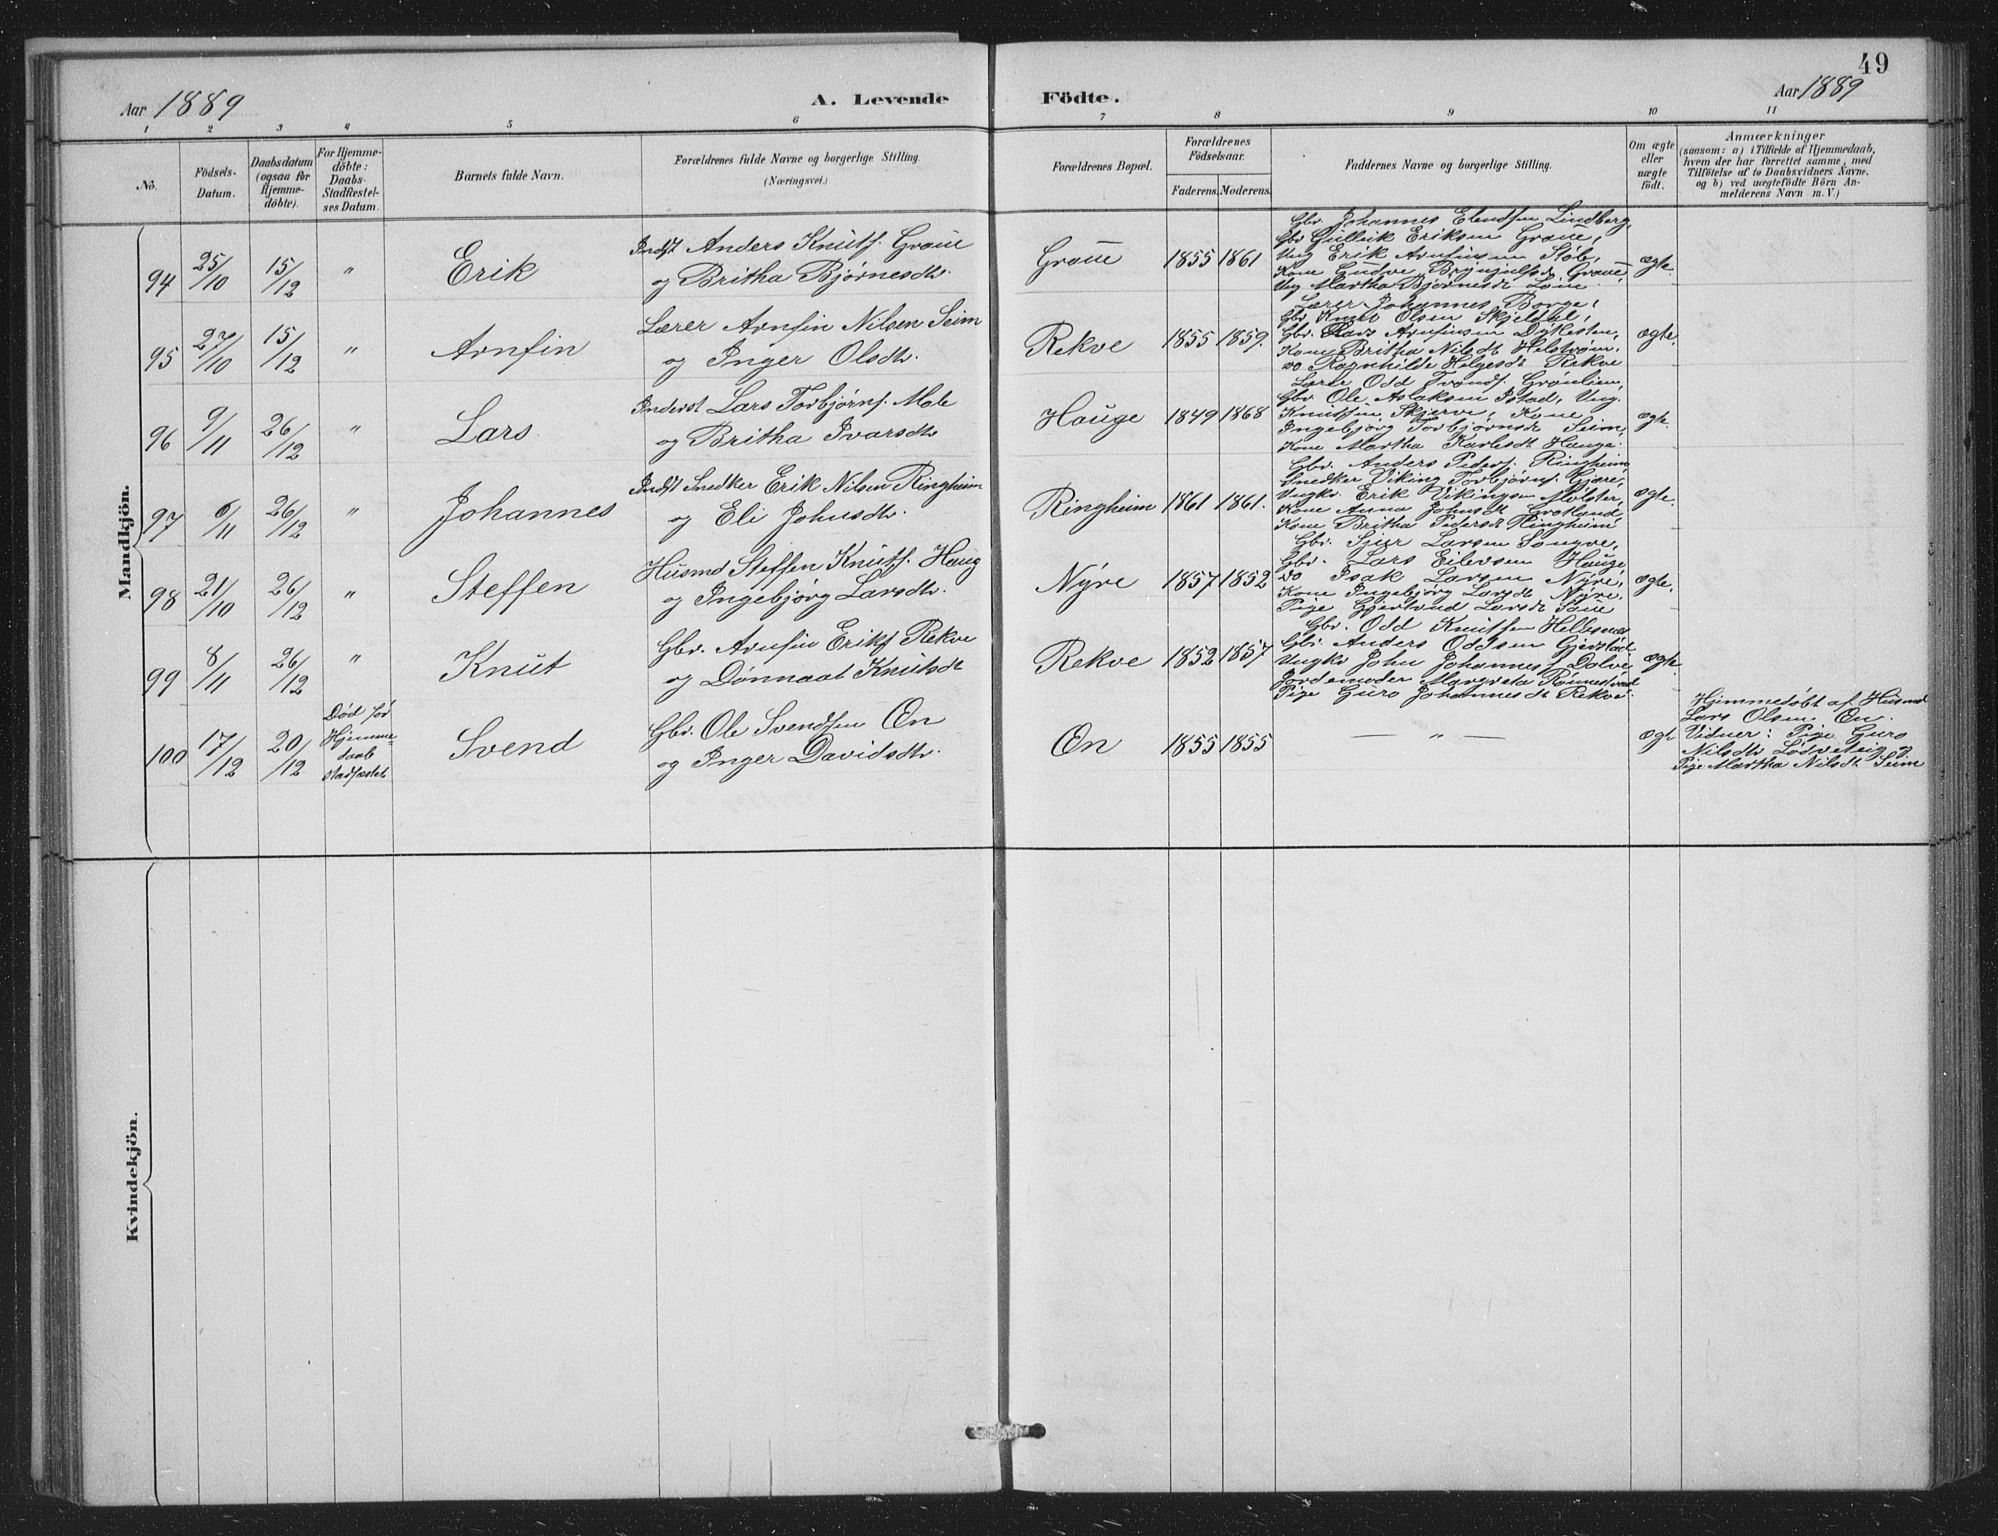 49
Aar 1889
A. Levende Födte.
Aar 1889
1 2 3 4 5 6 7 8 9 10 11
No.
Födsels-Datum.
Daabsdatum (ogsaa for Hjemme-döbte).
For Hjemme-döbte: Daabs-Stadfæstel-ses Datum.
Barnets fulde Navn.
Forældrenes fulde Navne og borgerlige Stilling.
(Næringsvei.)
Forældrenes Bopæl.
Forældrenes Födselsaar.
Faderens. Moderens.
Faddernes Navne og borgerlige Stilling.
Om ægte eller uægte födt.
Anmærkninger
(saasom: a) i Tilfælde af Hjemmedaab,
hvem der har forrettet samme, med
Tilföielse af to Daabsvidners Navne.
og b) ved uægtefödte Börn An-
melderens Navn m. V.)
Mandkjön.
94 25/10 15/12 " Erik
Indst Anders Knutf. Graue
og Britha Bjørnesdtr.
Graue 1855 1861
Gbr. Johannes Elendsen Lindberg,
Gbr Gullik Eriksen Graue,
Ung Erik Arnfinsen Støb,
Kone Gudve Brynjulfsd. Graue,
Ung Martha Bjørnesdt Løne.
ægte.
95 27/10 15/12 " Arnfin
Lærer Arnfin Nilsen Seim
og Inger Olsdtr.
Rekve 1855 1859.
Lærer Johannes Borge,
Gbr. Knut Olsen Skjeldal,
Gbr. Lars Arnfinsen Dykesten,
Kone Britha Nilsdt Helstrøm.
do Ragnhilde Helgesdt Rekve
ægte.
96 9/11 26/12 " Lars.
Inderst Lars Torbjørnf. Mole
og Britha Ivarsdtr
Hauge 1849 1868
Lærer Odd Trondf. Grønlien,
Gbr. Ole Aslaksen Istad, Ung.
Knutsen Skjerve, Kone
Ingebjørg Torbjørnsdt Seim,
Kone Martha Karlesdt Hauge.
ægte.
97 6/11 26/12 " Johannes
Indst Snedker Erik Nilsen Ringheim
og Eli Johnsdtr.
Ringheim 1861 1861.
Gbr. Anders Pedersf. Ringheim,
Snedker Viking Torbjørnf. Gjære,
Ungkr. Erik Vikingsen Mølster,
Kone Anna Johnsdt Grotland
Kone Britha Pedersdt Ringheim
ægte.
98 21/10 26/12 " Steffen
Husmd Steffen Knutf. Haug
og Ingebjørg Larsdtr.
Nýre 1857 1852
Gbr. Sjur Larsen Songve,
Gbr. Lars Eilevsen Hauge,
do Isak Larsen Nýre,
Kone Ingebjørg Larsdt Nýre,
Pige Gjertrud Larsdt Søue
ægte.
99 8/11 26/12 " Knut
Gbr. Arnfin Eriksf Rekve
og Dønnaat Knutsdt
Rekve 1852 1857
Gbr. Odd Knutsen Hellesnæs
Gbr. Anders Oddsen Gjerstad,
Ungkr John Johannesf Dolve,
Jordemoder Margreta Rønnestrand
Pige Guro Johannesdt Rekve.
ægte.
100 17/12 20/12
Død før
Hjemme-
daab
stadfæstet
Svend
Gbr. Ole Svendsen En
og Inger Davidsdtr.
En 1855 1855 — " —
ægte
Hjemmedøbt af Husmd
Lars Olsen En.
Vidner: Pige Guro
Nilsdtr Lødveteig og
Pige Martha Nilsdt Seim
Kvindekjön.